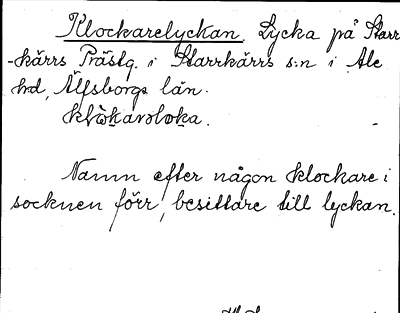 Klockarelyckan, Lycka på Starr
-kärrs Prästg. i Starrkärrs s:n i Ale
hd, Älfsborgs län.
Namn efter någon klockare i
socknen förr, besittare till lyckan.